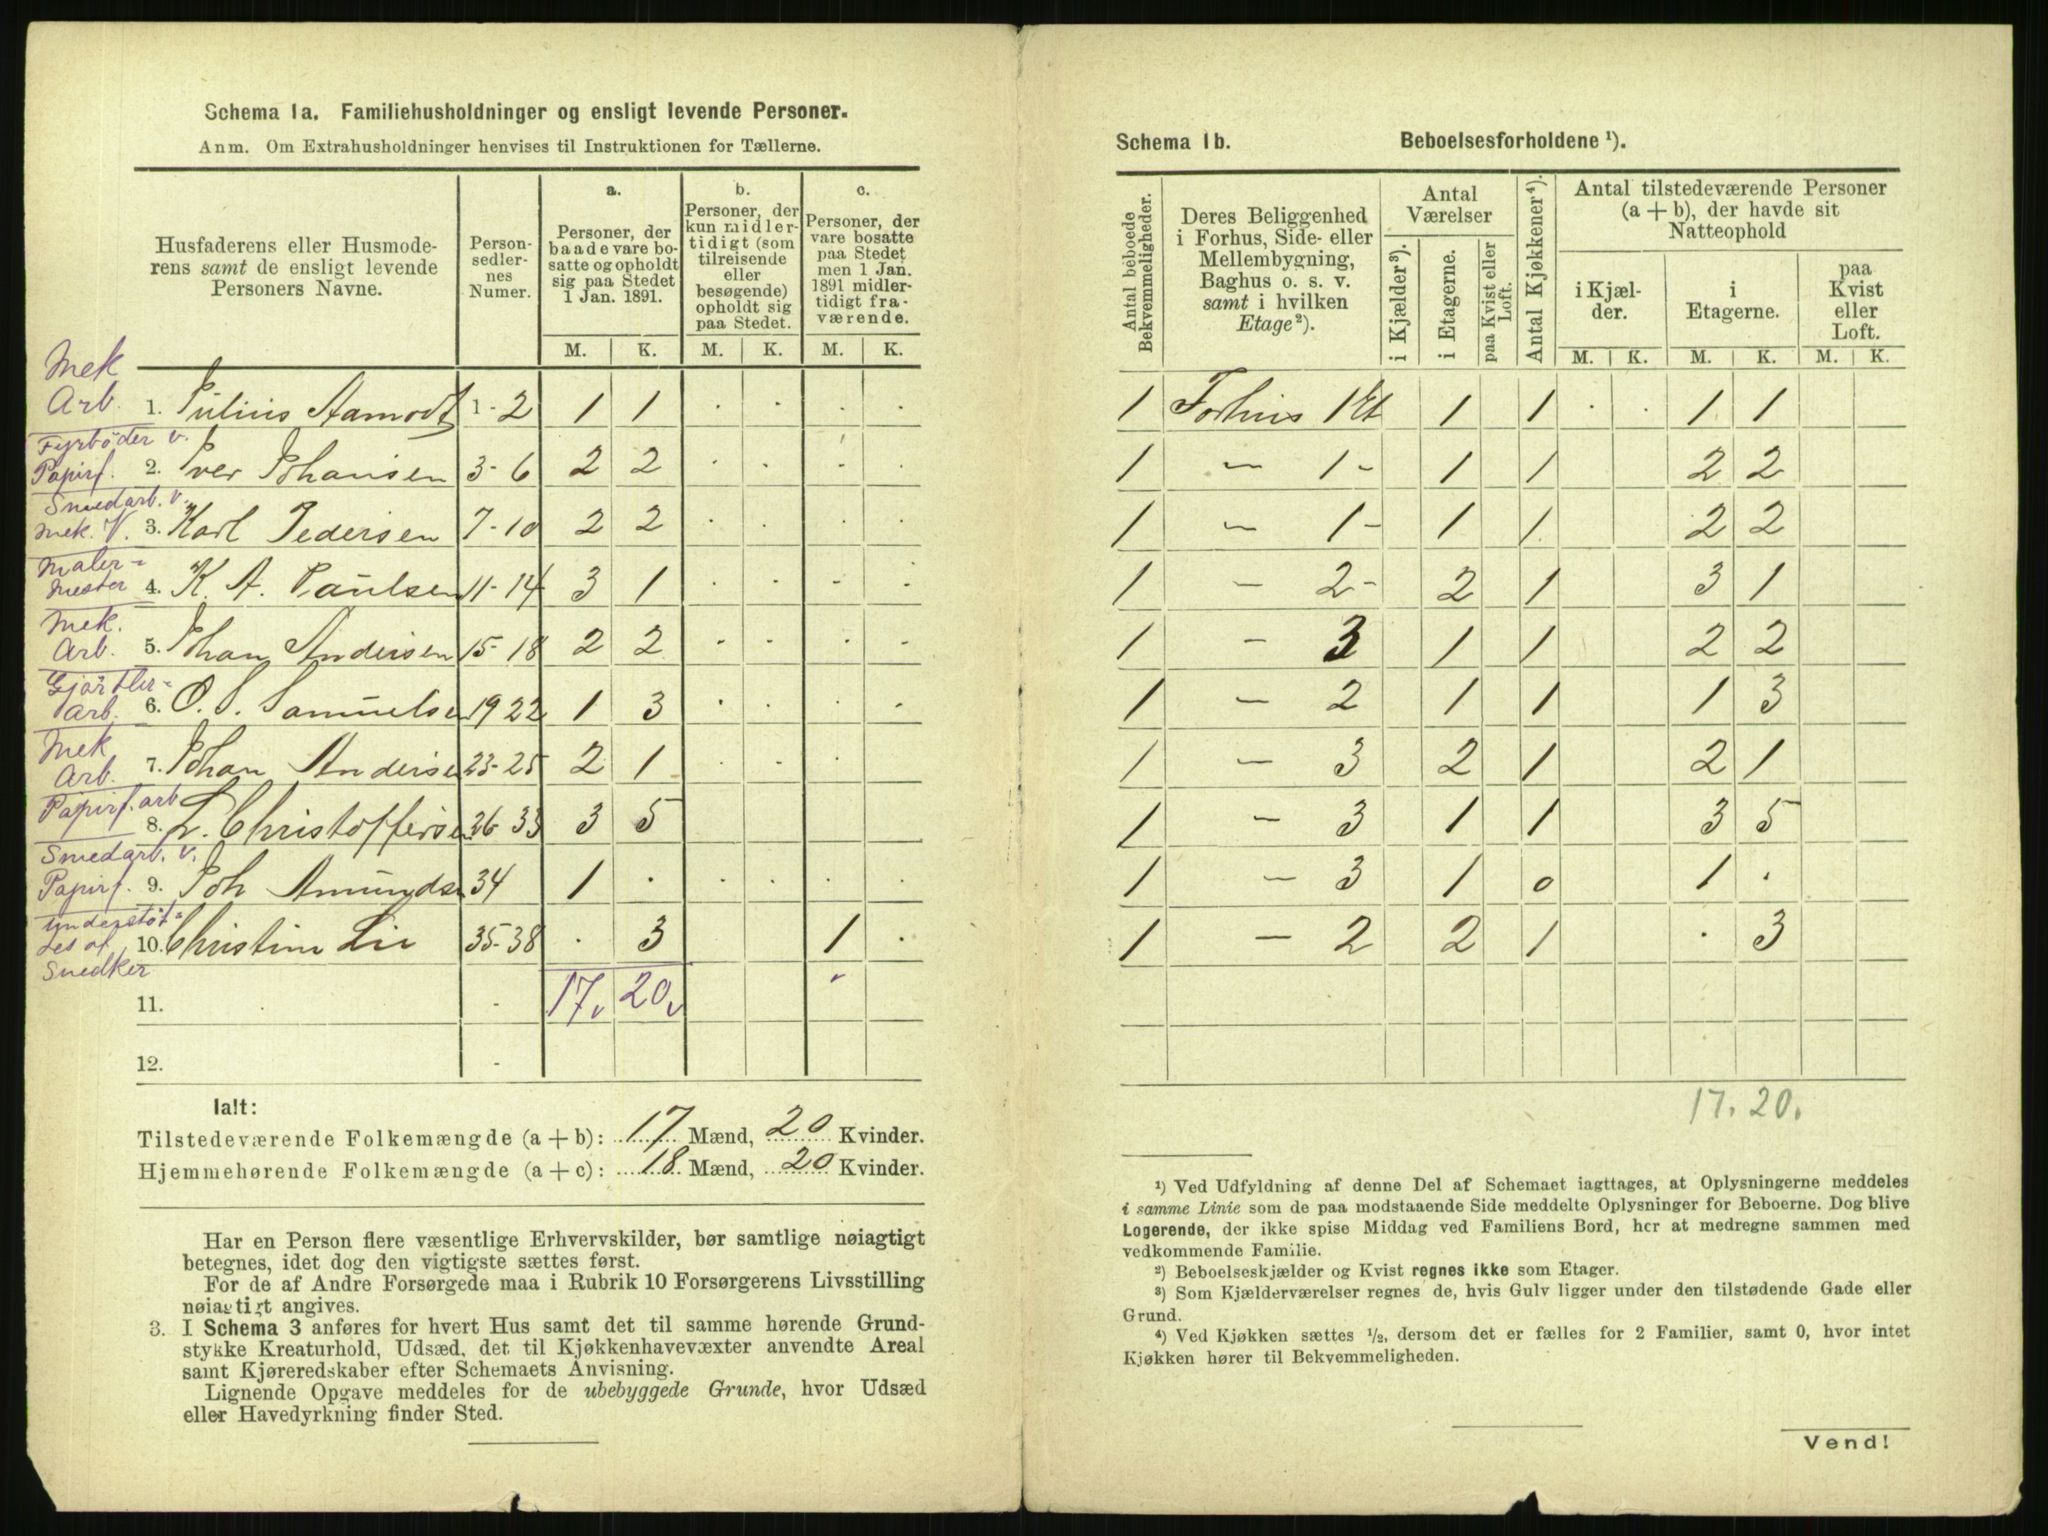 Schema 1a. Familiehusholdninger og ensligt levende Personer.
Anm. Om Extrahusholdninger henvises til Instruktionen for Tællerne.
Husfaderens eller Husmode-
rens samt de ensligt levende
Personers Navne.
Person-
sedler-
nes
Numer.
a.
Personer, der
baade vare bo-
satte og opholdt
sig paa Stedet
1 Jan. 1891.
b.
Personer, der
kun midler-
tidigt (som
tilreisende
eller
besøgende)
opholdt sig
paa Stedet.
c.
Personer, der
vare bosatte
paa Stedet
men 1 Jan.
1891 midler-
tidigt fra-
værende.
M. K. M. K. M. K.
Mek
Arb. 1. Julius Aamodt 1-2 1 1 . . . .
Fyrbøder v.
Papirf. 2. Iver Johansen 3-6 2 2 . . . .
Smedarb. v.
mek. V. 3. Karl Pedersen 7-10 2 2 . . . .
Maler-
mester 4. K. A. Paulsen 11-14 3 1 . . . .
Mek.
Arb. 5. Johan Andersen 15-18 2 2 . . . .
Gjørtler-
arb. 6. O. S. Samuelse 19 22 1 3 . . . .
Mek
Arb. 7. Johan Anderse 23-25 2 1 . . . .
Papirf. arb
8. L. Christofferse 26-33 3 5 . . . .
Smedarb. v.
Papirf. 9. Joh Amundse 34 1 . . . . .
Understøt-
tes af 10. Christine Lie 35-38 . 3 1 .
Snedker
11. 17. 20.
12.
Ialt:
Tilstedeværende Folkemængde (a + b): 17 Mænd, 20 Kvinder.
Hjemmehørende Folkemængde (a + c): 18 Mænd, 20 Kvinder.
Har en Person flere væsentlige Erhvervskilder, bør samtlige nøiagtigt
betegnes, idet dog den vigtigste sættes først.
For de af Andre Forsørgede maa i Rubrik 10 Forsørgerens Livsstilling
nøiagtigt angives.
3. I Schema 3 anføres for hvert Hus samt det til samme hørende Grund-
stykke Kreaturhold, Udsæd, det til Kjøkkenhavevæxter anvendte Areal
samt Kjøreredskaber efter Schemaets Anvisning.
Lignende Opgave meddeles for de ubebyggede Grunde, hvor Udsæd
eller Havedyrkning finder Sted.
Schema 1b. Beboelsesforholdene ¹).
Antal beboede
Bekvemmeligheder.
Deres Beliggenhed
i Forhus, Side- eller
Mellembygning,
Baghus o. s. v.
samt i hvilken
Etage ²).
Antal
Værelser
i Kjælder ³).
i Etagerne.
paa Kvist eller
Loft.
Antal Kjøkkener ⁴).
Antal tilstedeværende Personer
(a + b), der havde sit
Natteophold
i Kjæl-
der.
i
Etagerne.
paa
Kvist
eller
Loft.
M. K. M. K. M. K.
1 Forhus 1 Et 1 1 . . 1 1
1 - 1- 1 1 2 2
1 - 1- 1 1 2 2
1 - 2- 2 1 3 1
1 - 3 1 1 2 2
1 - 2 1 1 1 3
1 - 3 2 1 2 1
1 - 3 1 1 3 5
1 - 3 1 0 1 .
1 - 2 2 1 . 3
17. 20.
¹) Ved Udfyldning af denne Del af Schemaet iagttages, at Oplysningerne meddeles
i samme Linie som de paa modstaaende Side meddelte Oplysninger for Beboerne. Dog blive
Logerende, der ikke spise Middag ved Familiens Bord, her at medregne sammen med
vedkommende Familie.
²) Beboelseskjælder og Kvist regnes ikke som Etager.
³) Som Kjælderværelser regnes de, hvis Gulv ligger under den tilstødende Gade eller
Grund.
⁴) Ved Kjøkken sættes ½, dersom det er fælles for 2 Familier, samt 0, hvor intet
Kjøkken hører til Bekvemmeligheden.
Vend!